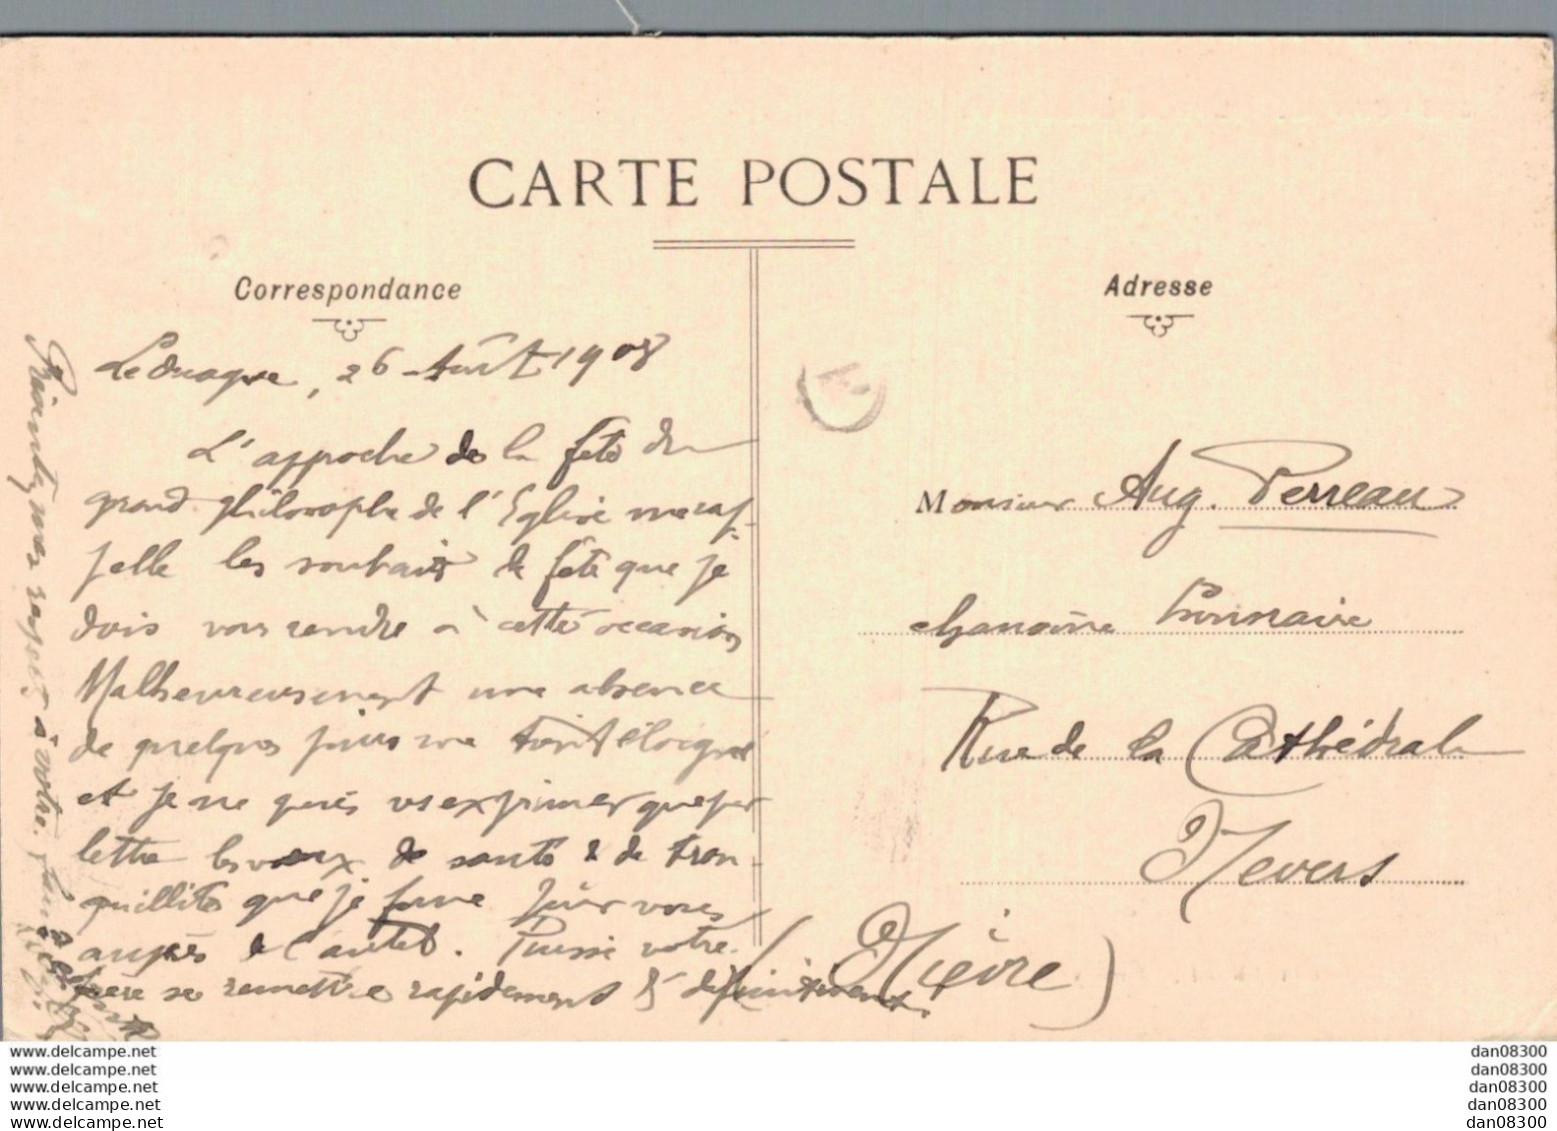 CARTE POSTALE
Correspondance
Adresse
26 Août 1908
L'approche de la fête du
grand philosophe de l'Eglise me rap-
pelle les souhaits de fête que je
dois vous rendre à cette occasion
Malheureusement une absence
de quelques jours me tient éloigné
et je ne puis vs exprimer que par
lettre les voeux de santé & de tran-
quillité que je forme pour vous
auprès de l'autel. Puisse votre
père se remettre rapidement & définitivement.
mes respects à votre
Monsieur Aug. Perreau
chanoine honoraire
Rue de la Cathédrale
Nevers
(Nièvre)
www.delcampe.net
www.delcampe.net
www.delcampe.net
www.delcampe.net
www.delcampe.net
dan08300
dan08300
dan08300
dan08300
dan08300